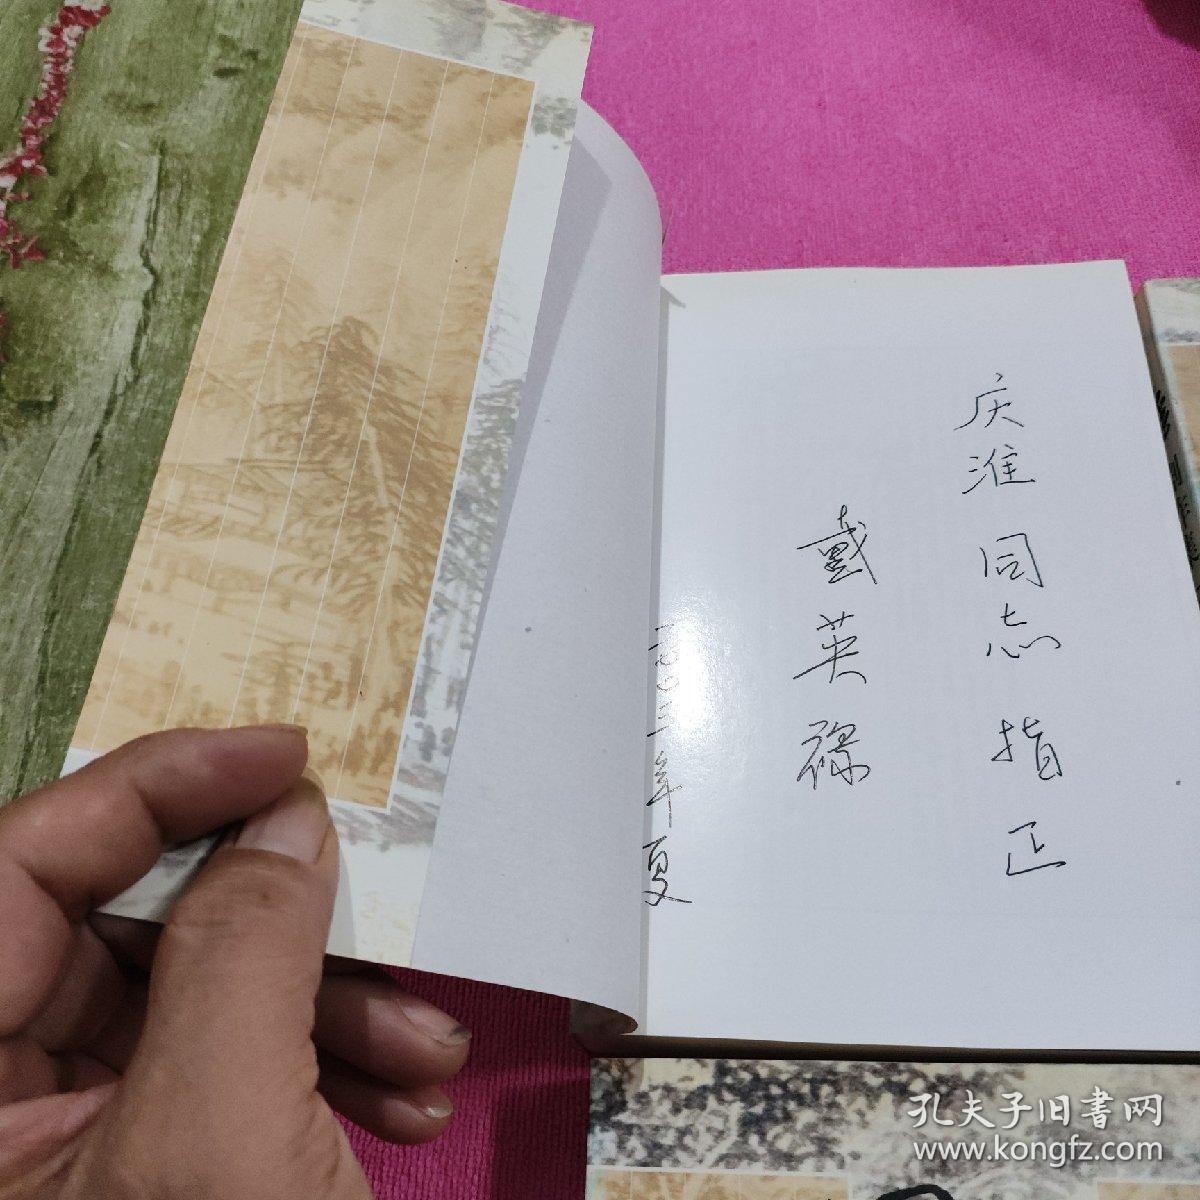 庆淮同志指正
戴英禄
二〇〇三年夏
孔夫子旧書网
www.kongfz.com